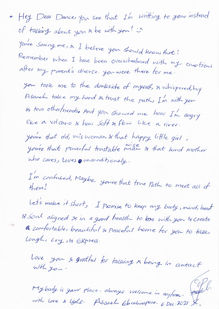 Hey Dear Dance, You see that I'm writing to you instead
of talking about you & be with you! :)
you're saving me, & I believe you should know that!
Remember when I have been overwhelmed with my emotions
after my parents divorce you were there for me
you took me to the darkside of myself & whispered by
take my hand & trust the path, I'm with you
& you showed me how I'm angry
like a volcano & how soft & slow like a river.
you're that old, wise woman & that happy little girl,
you're that powerful trustable man & that kind mother
who cares, loves unconditionally.
I'm confused, Maybe you're that true Path to meet all of
them!
Let's make it short, I promise to keep my body, mind, heart
& Soul aligned & in a good health to be with you & create
a comfortable, beautiful & peaceful home for you to take
laugh, cry, to express.
Love you & grateful for touching & being in contact
with you.
My body is your place - always welcome
with love & light